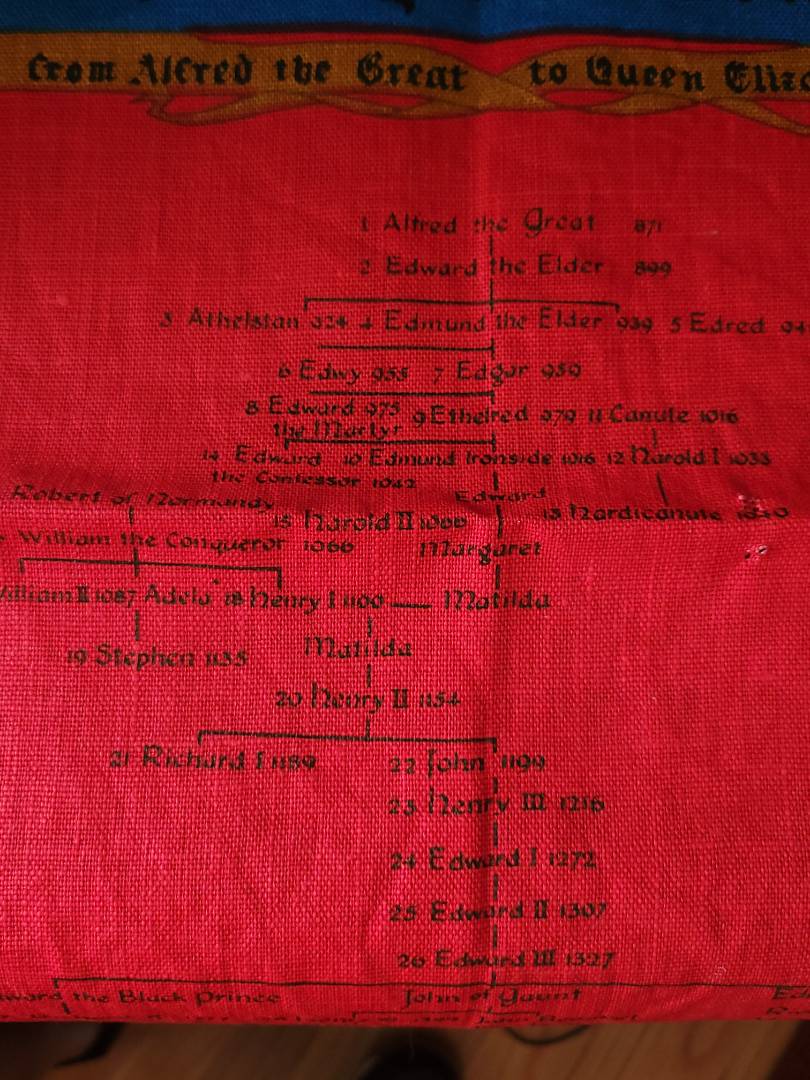 from Alfred the Great to Queen Eliza
1 Alfred the Great 871
2 Edward the Elder 899
3 Athelstan 924 4 Edmund the Elder 939 5 Edred 94
6 Edwy 955 7 Edgar 959
8 Edward 975 9 Ethelred 979 11 Canute 1016
the Martyr
14 Edward 10 Edmund Ironside 1016 12 Harold I 1035
the Confessor 1042
Robert of Normandy Edward
15 Harold II 1066 13 Hardicanute 1040
William the Conqueror 1066 Margaret
William II 1087 Adela 18 Henry I 1100 Matilda
19 Stephen 1135 Matilda
20 Henry II 1154
21 Richard I 1189 22 John 1199
23 Henry III 1216
24 Edward I 1272
25 Edward II 1307
26 Edward III 1327
ward the Black Prince John of Gaunt Ed